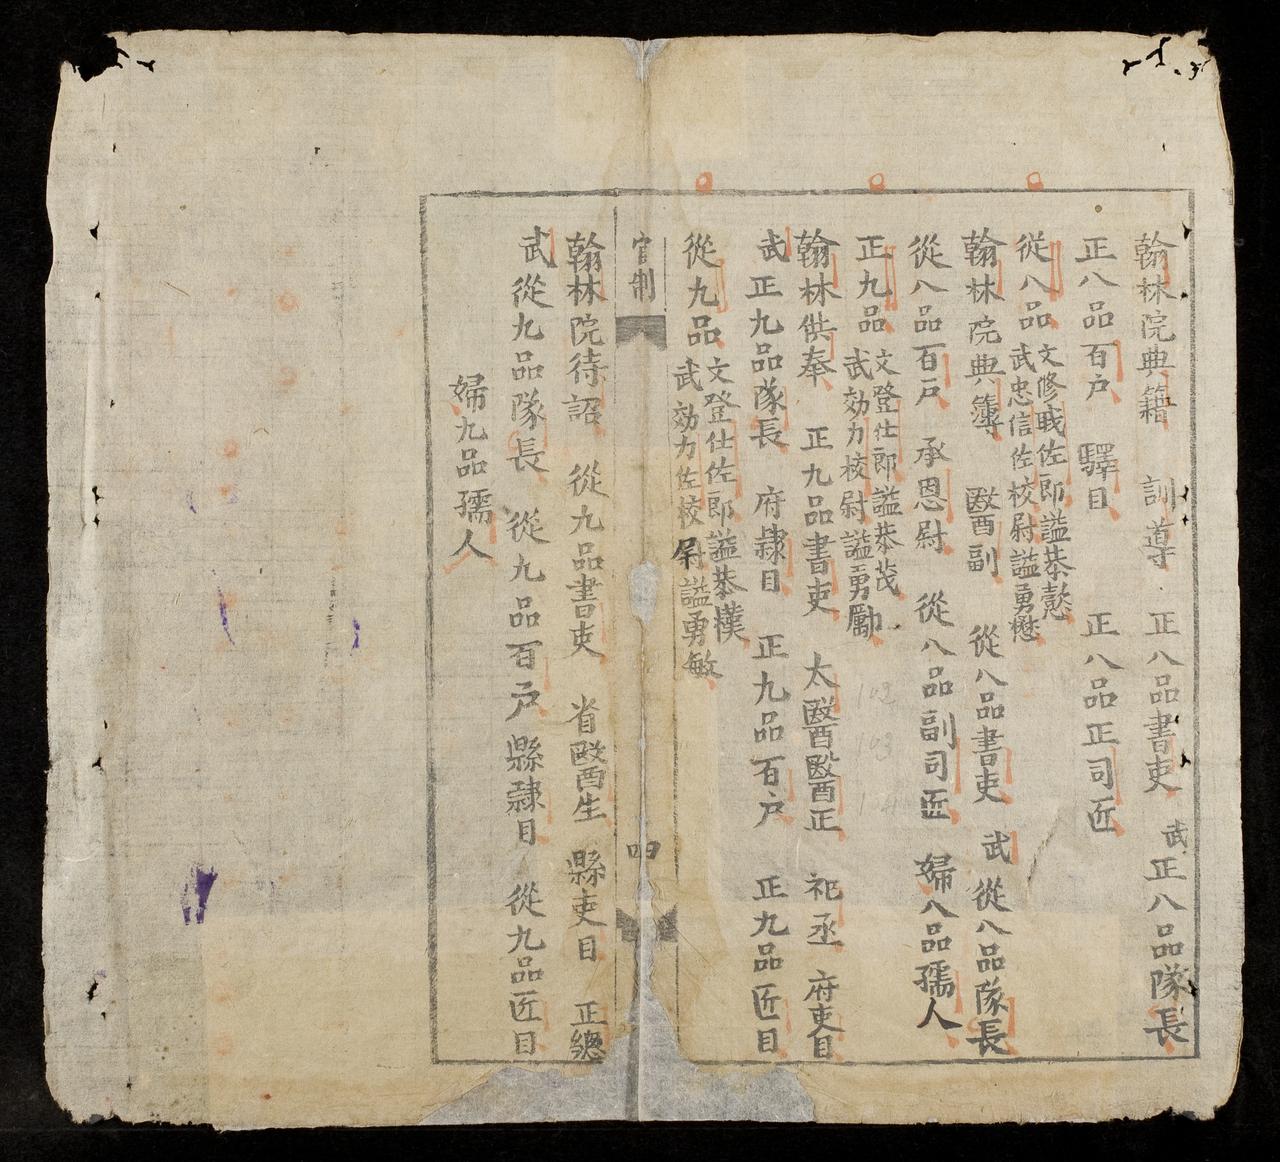 翰林院典籍 訓導 正八品書吏 武正八品隊長
正八品百戶 驛目 正八品正司匠
從八品
文修職佐郎謚恭愨
武忠信佐校尉謚勇懋
翰林院典簿 醫副 從八品書吏 武從八品隊長
從八品百戶 承恩尉 從八品副司匠 婦八品孺人
正九品
文登仕郎謚恭茂
武効力校尉謚勇勵
翰林供奉 正九品書吏 太醫醫正 祀丞 府吏目
武正九品隊長 府隷目 正九品百戶 正九品匠目
從九品
文登仕佐郎謚恭樸
武効力佐校尉謚勇敏
官制 四
翰林院待詔 從九品書吏 省醫生 縣吏目 正總
武從九品隊長 從九品百戶 縣隷目 從九品匠目
婦九品孺人
102
103
104